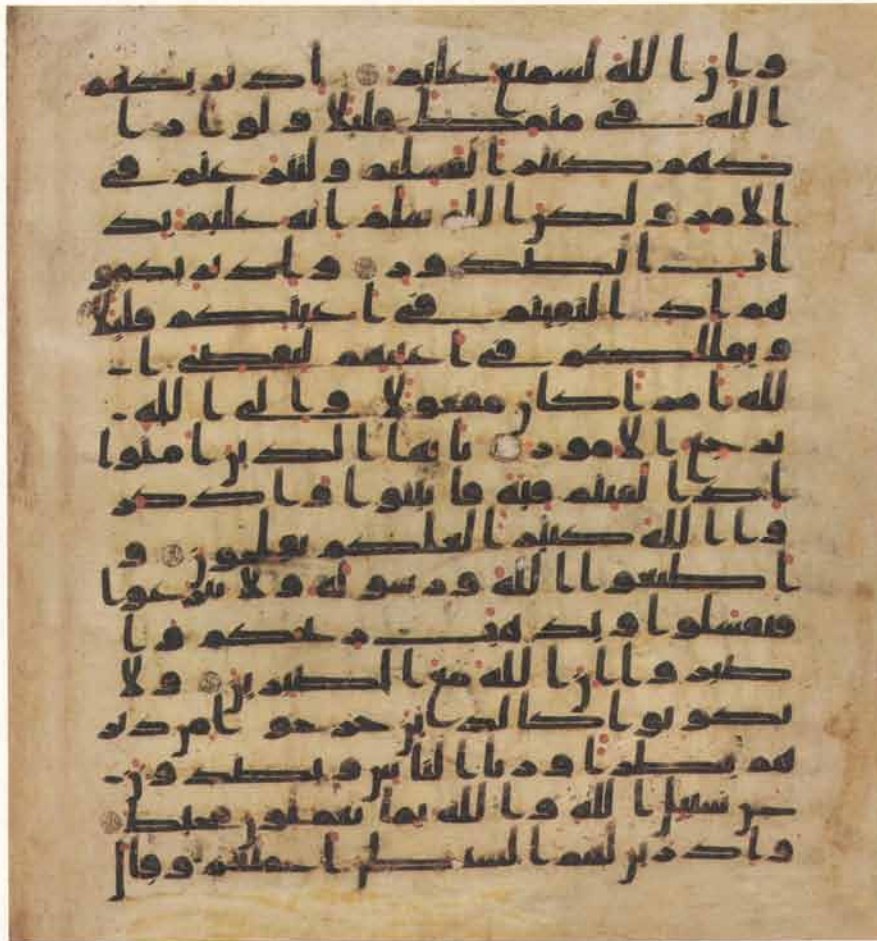 وان الله لسميع عليم اذ يريكهم
الله في منمك قليلا ولو ارا
كهم كثيرا لفشلتم ولتنزعتم في
الامر ولكن الله سلم انه عليم بذ
ات الصدور واذ يريكمو
هم اذ التقيتم في اعينكم قليلا
ويقللكم في اعينهم ليقضي ا
لله امرا كان مفعولا والي الله
ترجع الامور يايها الذين امنوا
اذا لقيتم فئة فاثبتوا واذكر
وا الله كثيرا لعلكم تفلحون و
اطيعوا الله ورسوله ولا تنزعوا
فتفشلوا وتذهب ريحكم وا
صبروا ان الله مع الصبرين ولا
تكونوا كالذين خرجوا من دير
هم بطرا ورئا الناس ويصدون
عن سبيل الله والله بما يعملون محيط
واذ زين لهم الشيطن اعملهم وقال